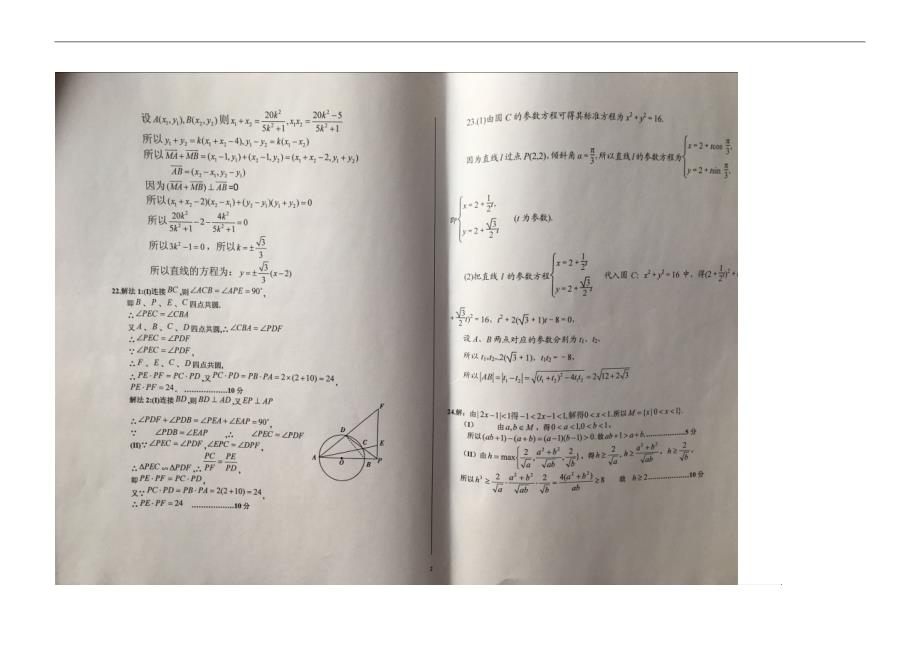 设 A(x₁,y₁),B(x₂,y₂)则 x₁+x₂=20k²/(5k²+1),x₁x₂=(20k²-5)/(5k²+1)
所以 y₁+y₂=k(x₁+x₂-4),y₁-y₂=k(x₁-x₂)
所以 MA+MB=(x₁-1,y₁)+(x₂-1,y₂)=(x₁+x₂-2,y₁+y₂)
AB=(x₂-x₁,y₂-y₁)
因为(MA+MB)⊥AB=0
所以(x₁+x₂-2)(x₂-x₁)+(y₂-y₁)(y₁+y₂)=0
所以 20k²/(5k²+1)-2-4k²/(5k²+1)=0
所以3k²-1=0,所以k=±√3/3
所以直线的方程为:y=±√3/3(x-2)
22.解法 1:(I)连接 BC,则∠ACB=∠APE=90°,
即 B、P、E、C 四点共圆.
∴∠PEC=∠CBA
又 A、B、C、D 四点共圆,∴∠CBA=∠PDF
∴∠PEC=∠PDF
∵∠PEC=∠PDF,
∴F、E、C、D 四点共圆,
∴PE·PF=PC·PD,又 PC·PD=PB·PA=2×(2+10)=24,
PE·PF=24. ..................10 分
解法 2:(I)连接 BD,则 BD⊥AD,又 EP⊥AP
∴∠PDF+∠PDB=∠PEA+∠EAP=90°,
∵ ∠PDB=∠EAP ,∴ ∠PEC=∠PDF
(II)∵∠PEC=∠PDF,∠EPC=∠DPF,
∴△PEC∽△PDF,∴PC/PF=PE/PD,
即 PE·PF=PC·PD,
又∵PC·PD=PB·PA=2(2+10)=24,
∴PE·PF=24 ..................10 分
F
D
C
E
A
O
B
P
2
23.(1)由圆 C 的参数方程可得其标准方程为 x²+y²=16.
因为直线 l 过点 P(2,2),倾斜角 α=π/3,所以直线 l 的参数方程为{x=2+tcos π/3, y=2+tsin π/3,
即{x=2+1/2t, y=2+√3/2t (t 为参数).
(2)把直线 l 的参数方程{x=2+1/2t y=2+√3/2t 代入圆 C: x²+y²=16 中,得(2+1/2t)²+
+√3/2t)²=16, t²+2(√3+1)t-8=0,
设 A、B 两点对应的参数分别为 t₁, t₂,
所以 t₁+t₂=-2(√3+1), t₁t₂=-8,
所以|AB|=|t₁-t₂|=√((t₁+t₂)²-4t₁t₂)=2√(12+2√3)
24.解: 由|2x-1|<1得-1<2x-1<1,解得0<x<1.所以M={x|0<x<1}.
(I) 由a,b∈M,得0<a<1,0<b<1,
所以(ab+1)-(a+b)=(a-1)(b-1)>0.故ab+1>a+b.................5分
(II) 由h=max{2/√a,(a²+b²)/√ab,2/√b},得h≥2/√a,h≥(a²+b²)/√ab,h≥2/√b,
所以h³≥2/√a·(a²+b²)/√ab·2/√b=4(a²+b²)/ab≥8 故 h≥2................10分